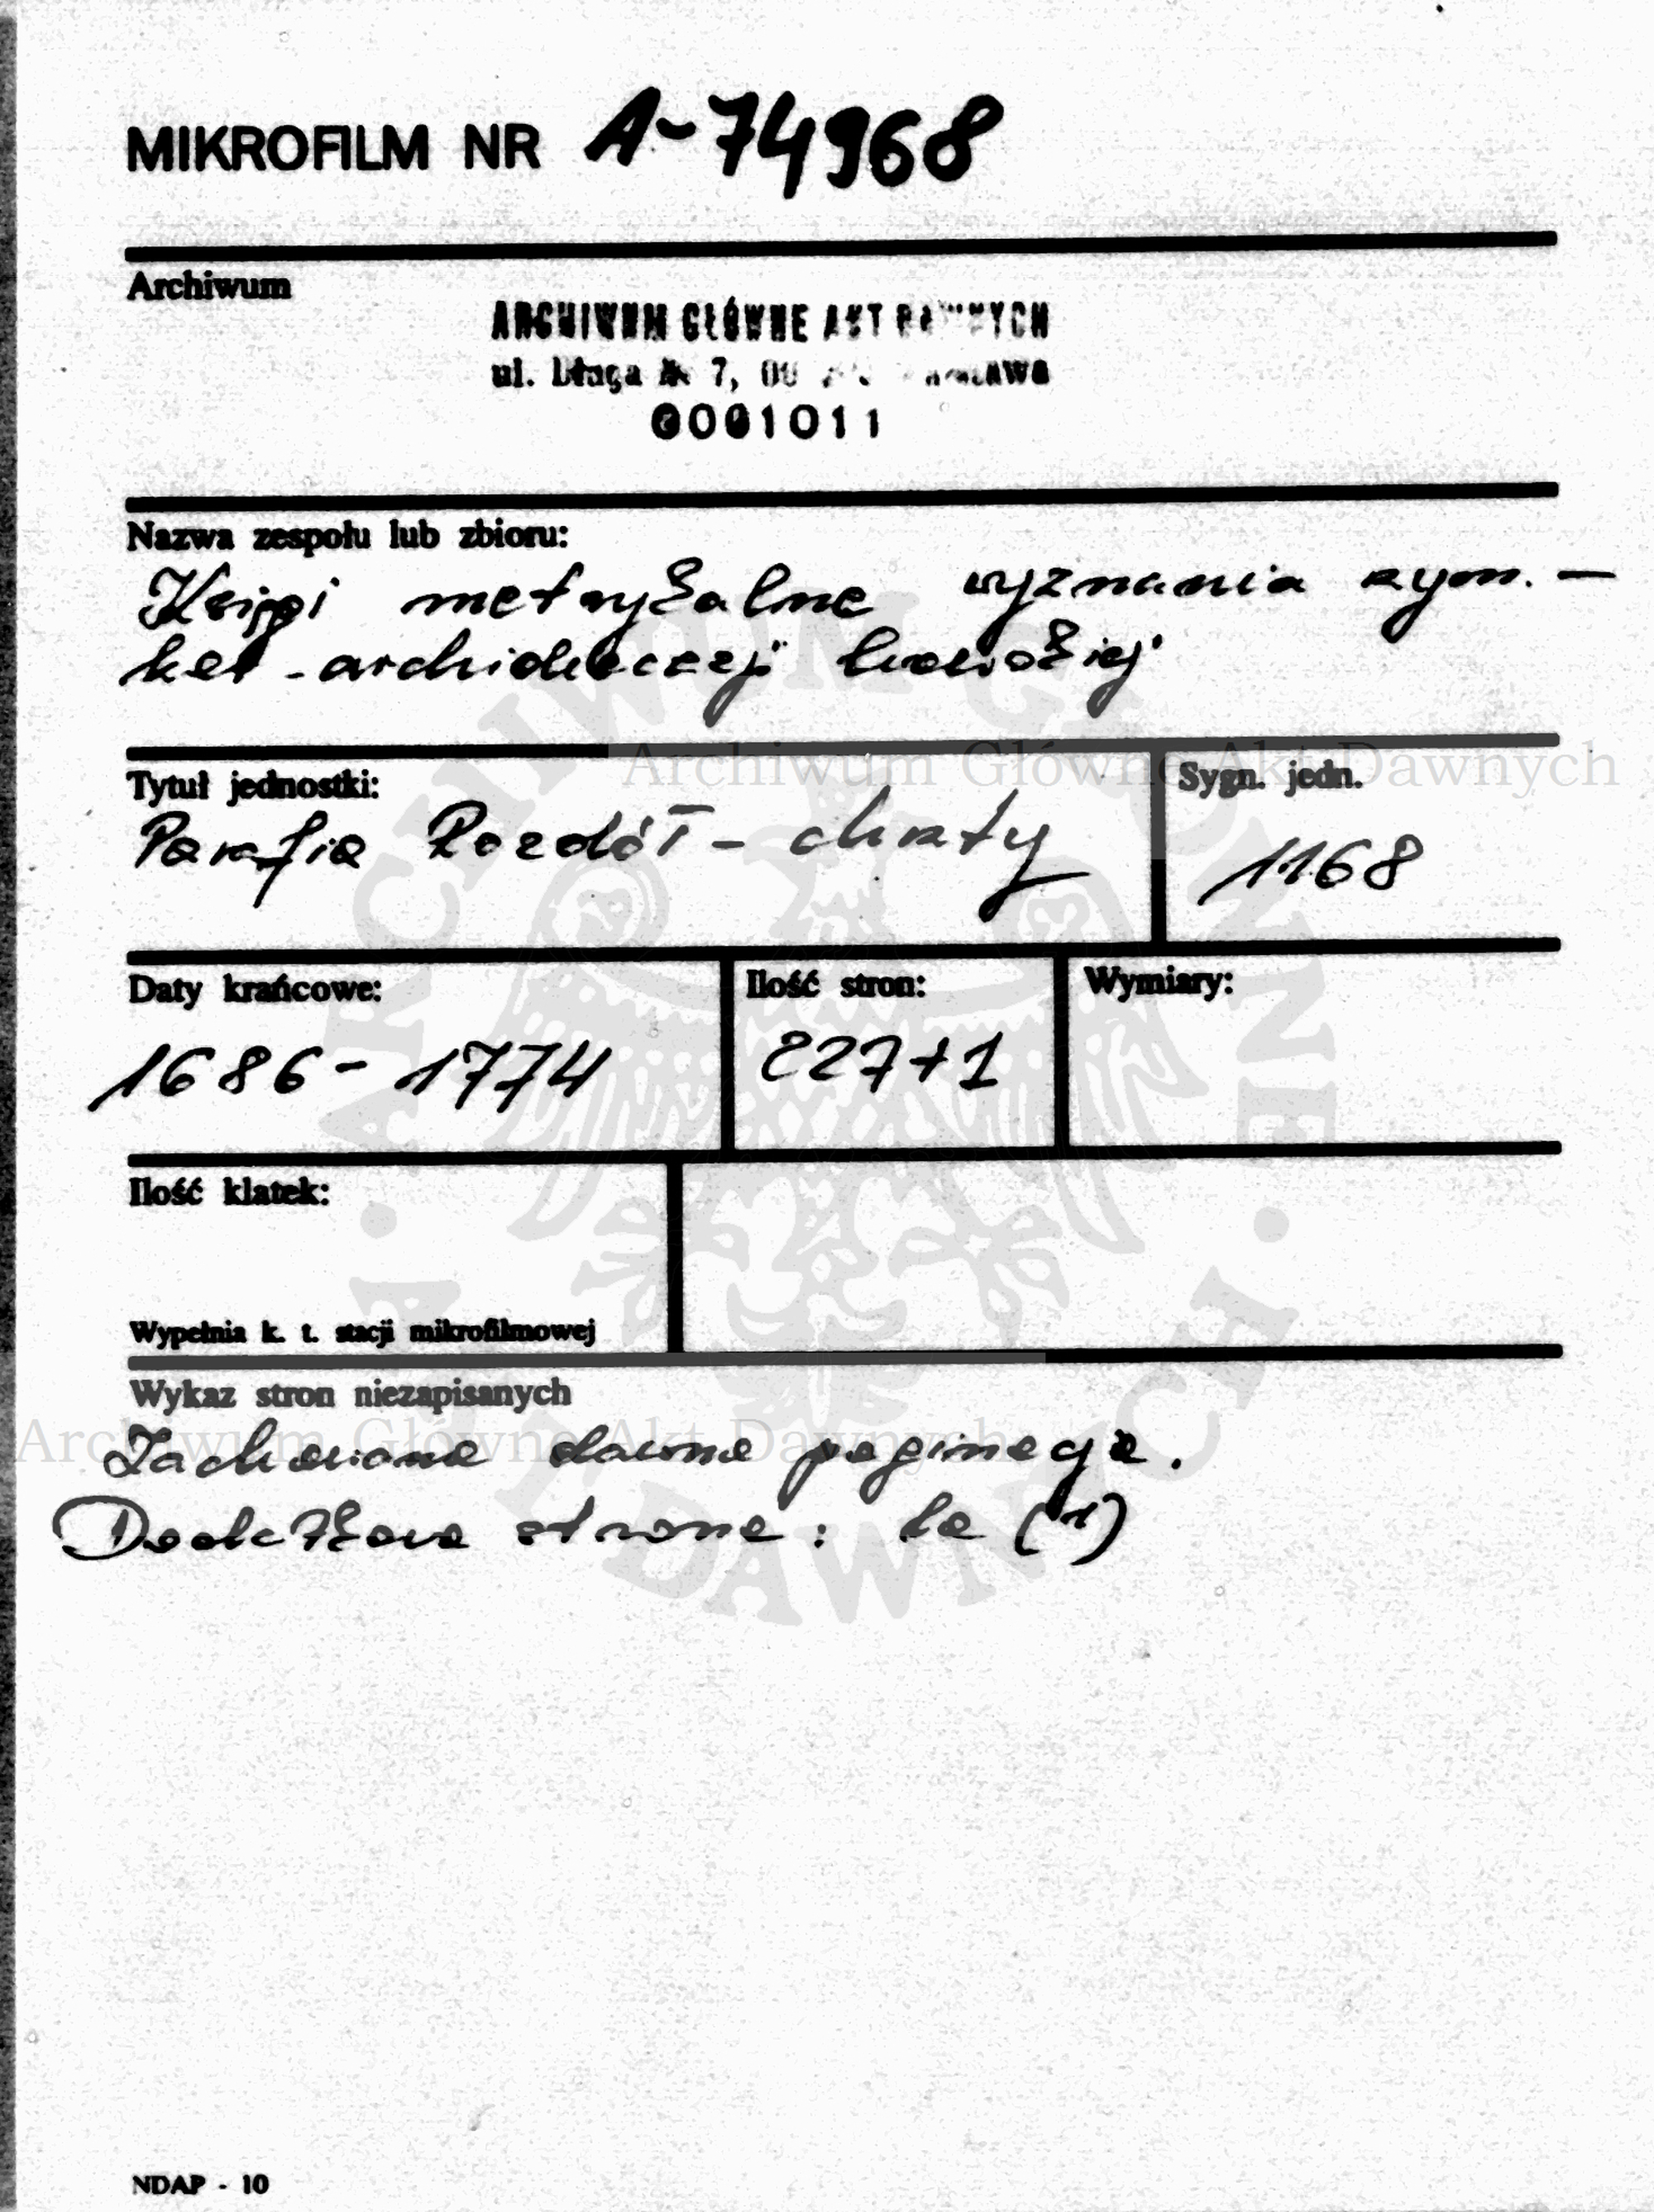 MIKROFILM NR A-74968
Archiwum
ARCHIWUM GŁÓWNE AKT DAWNYCH
ul. Długa 7, 00
0001011
Nazwa zespołu lub zbioru:
Księgi metrykalne wyznania rzym.-
kat - archidiecezji lwowskiej
Archiwum Główne Akt Dawnych
Tytuł jednostki:
Sygn. jedn.
Parafia Rozdół - chrzty
1168
Daty krańcowe:
Ilość stron:
Wymiary:
1686 - 1774
227+1
Ilość klatek:
Wypełnia k. t. stacji mikrofilmowej
Wykaz stron niezapisanych
Archiwum Główne Akt Dawnych
Zachowana dawna paginacja.
Dodatkowa strona: 1a (1)
ARCHIWUM GŁÓWNE AKT DAWNYCH
NDAP - 10